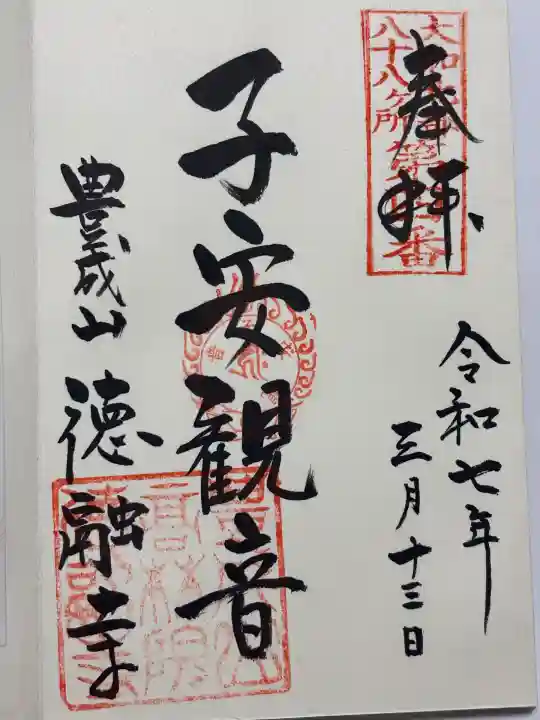 奉拝
八十八ヶ所
令和七年
三月十三日
子安観音
豊成山
徳融寺